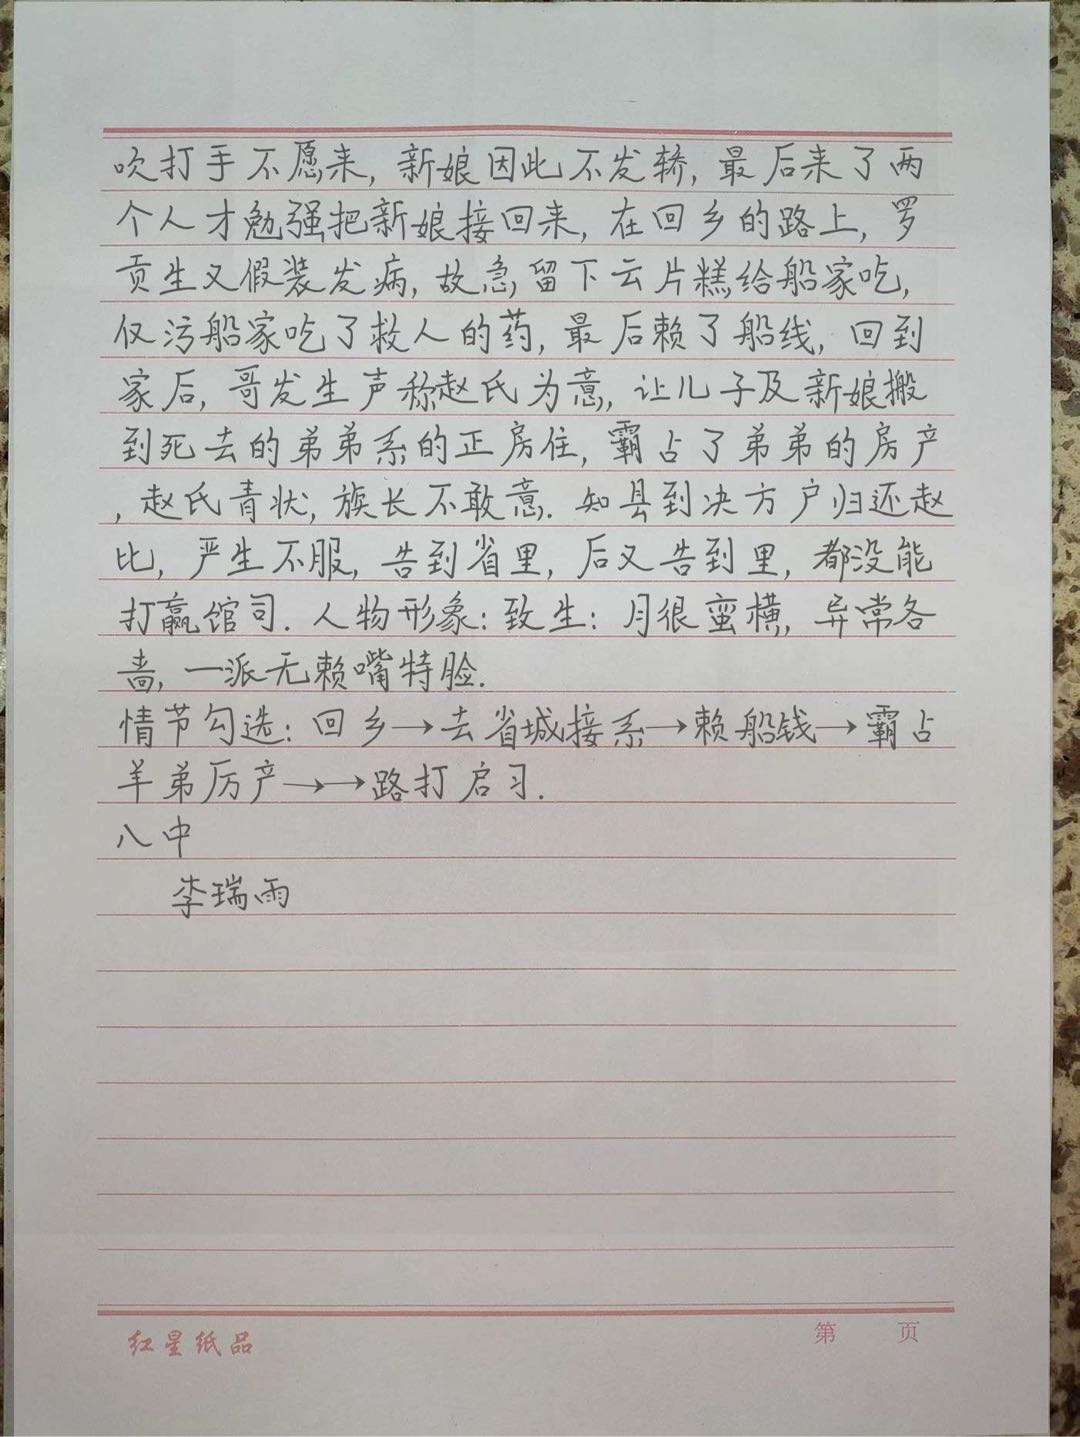 吹打手不愿来, 新娘因此不发轿, 最后来了两
个人才勉强把新娘接回来, 在回乡的路上, 罗
贡生又假装发病, 故急留下云片糕给船家吃,
仅污船家吃了救人的药, 最后赖了船线, 回到
家后, 哥发生声称赵氏为意, 让儿子及新娘搬
到死去的弟弟系的正房住, 霸占了弟弟的房产
, 赵氏青状, 族长不敢意. 知县到决方户归还赵
比, 严生不服, 告到省里, 后又告到里, 都没能
打赢馆司. 人物形象: 致生: 月很蛮横, 异常各
啬, 一派无赖嘴特脸.
情节勾选: 回乡→去省城接系→赖船钱→霸占
羊弟厉产→→路打启习.
八中
李瑞雨
红星纸品
第 页